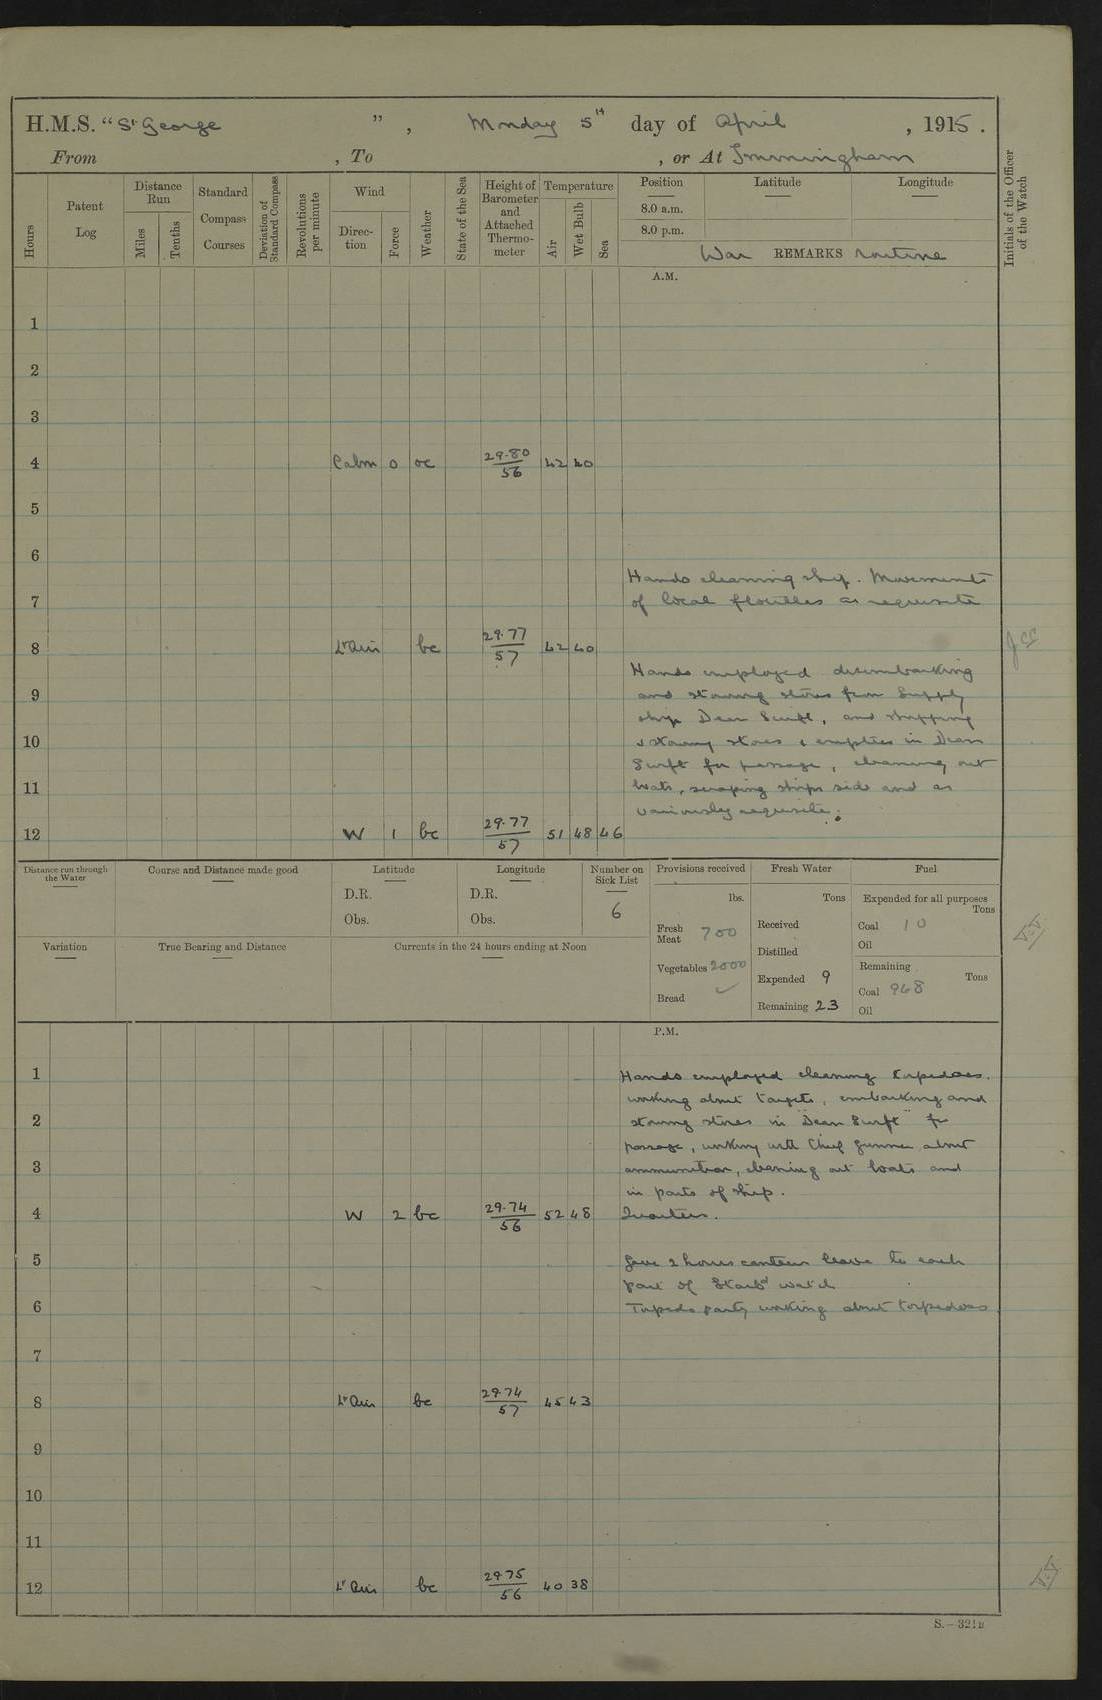 H.M.S. "St George", Monday 5th day of April, 1915.
From , To , or At Immingham
Hours
Patent Log
Distance Run
Miles
Tenths
Standard Compass Courses
Deviation of Standard Compass
Revolutions per minute
Wind
Direction
Force
Weather
State of the Sea
Height of Barometer and Attached Thermometer
Temperature
Air
Wet Bulb
Sea
Position
Latitude
Longitude
8.0 a.m.
8.0 p.m.
War REMARKS routine
Initials of the Officer of the Watch
A.M.
1
2
3
4 Calm 0 oc 29.80/56 42 40
5
6
Hands cleaning ship. Movements
7 of local flotillas as requisite
8 Lt Airs bc 29.77/57 42 40
Hands employed disembarking
9 and stowing stores from Supply
ship Dean Swift, and shipping
10 & stowing stores & empties in Dean
Swift for passage, cleaning out
11 boats, scraping ships side and as
variously requisite.
12 W 1 bc 29.77/57 51 48 46
Distance run through the Water
Course and Distance made good
Latitude
D.R.
Obs.
Longitude
D.R.
Obs.
Number on Sick List
6
Provisions received
lbs.
Fresh Meat 700
Vegetables 2000
Bread ✓
Fresh Water
Tons
Received
Distilled
Expended 9
Remaining 23
Fuel
Expended for all purposes
Tons
Coal 10
Oil
Remaining
Tons
Coal 968
Oil
Variation
True Bearing and Distance
Currents in the 24 hours ending at Noon
P.M.
1 Hands employed cleaning torpedoes.
working about targets, embarking and
2 stowing stores in "Dean Swift" for
passage, working with Chief Gunner about
3 ammunition, cleaning out boats and
in parts of ship.
4 W 2 bc 29.74/56 52 48 Quarters.
5 Gave 2 hours canteen leave to each
part of Starbd watch
6 Torpedo party working about torpedoes
7
8 Lt Airs bc 29.74/57 45 43
9
10
11
12 Lt Airs bc 29.75/56 40 38
S.—321B